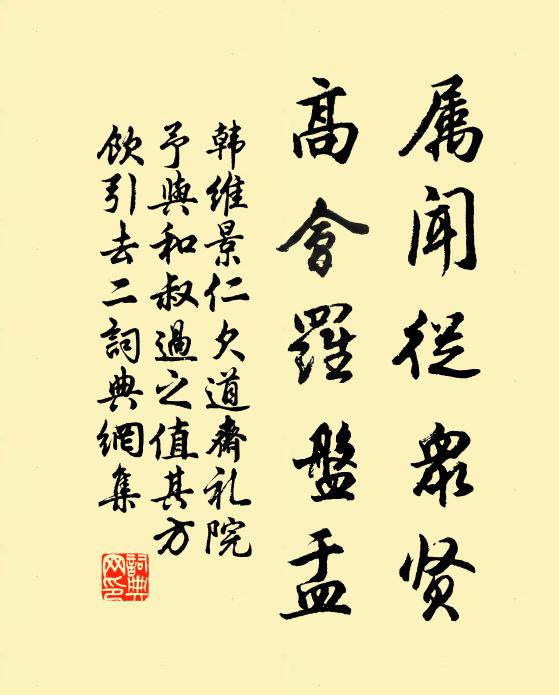 属闻従衆贤
高會羅盤盂
韩维景仁久道齋礼院
予與和叔過之值其方
饮引去二詞典網集
詞典网印